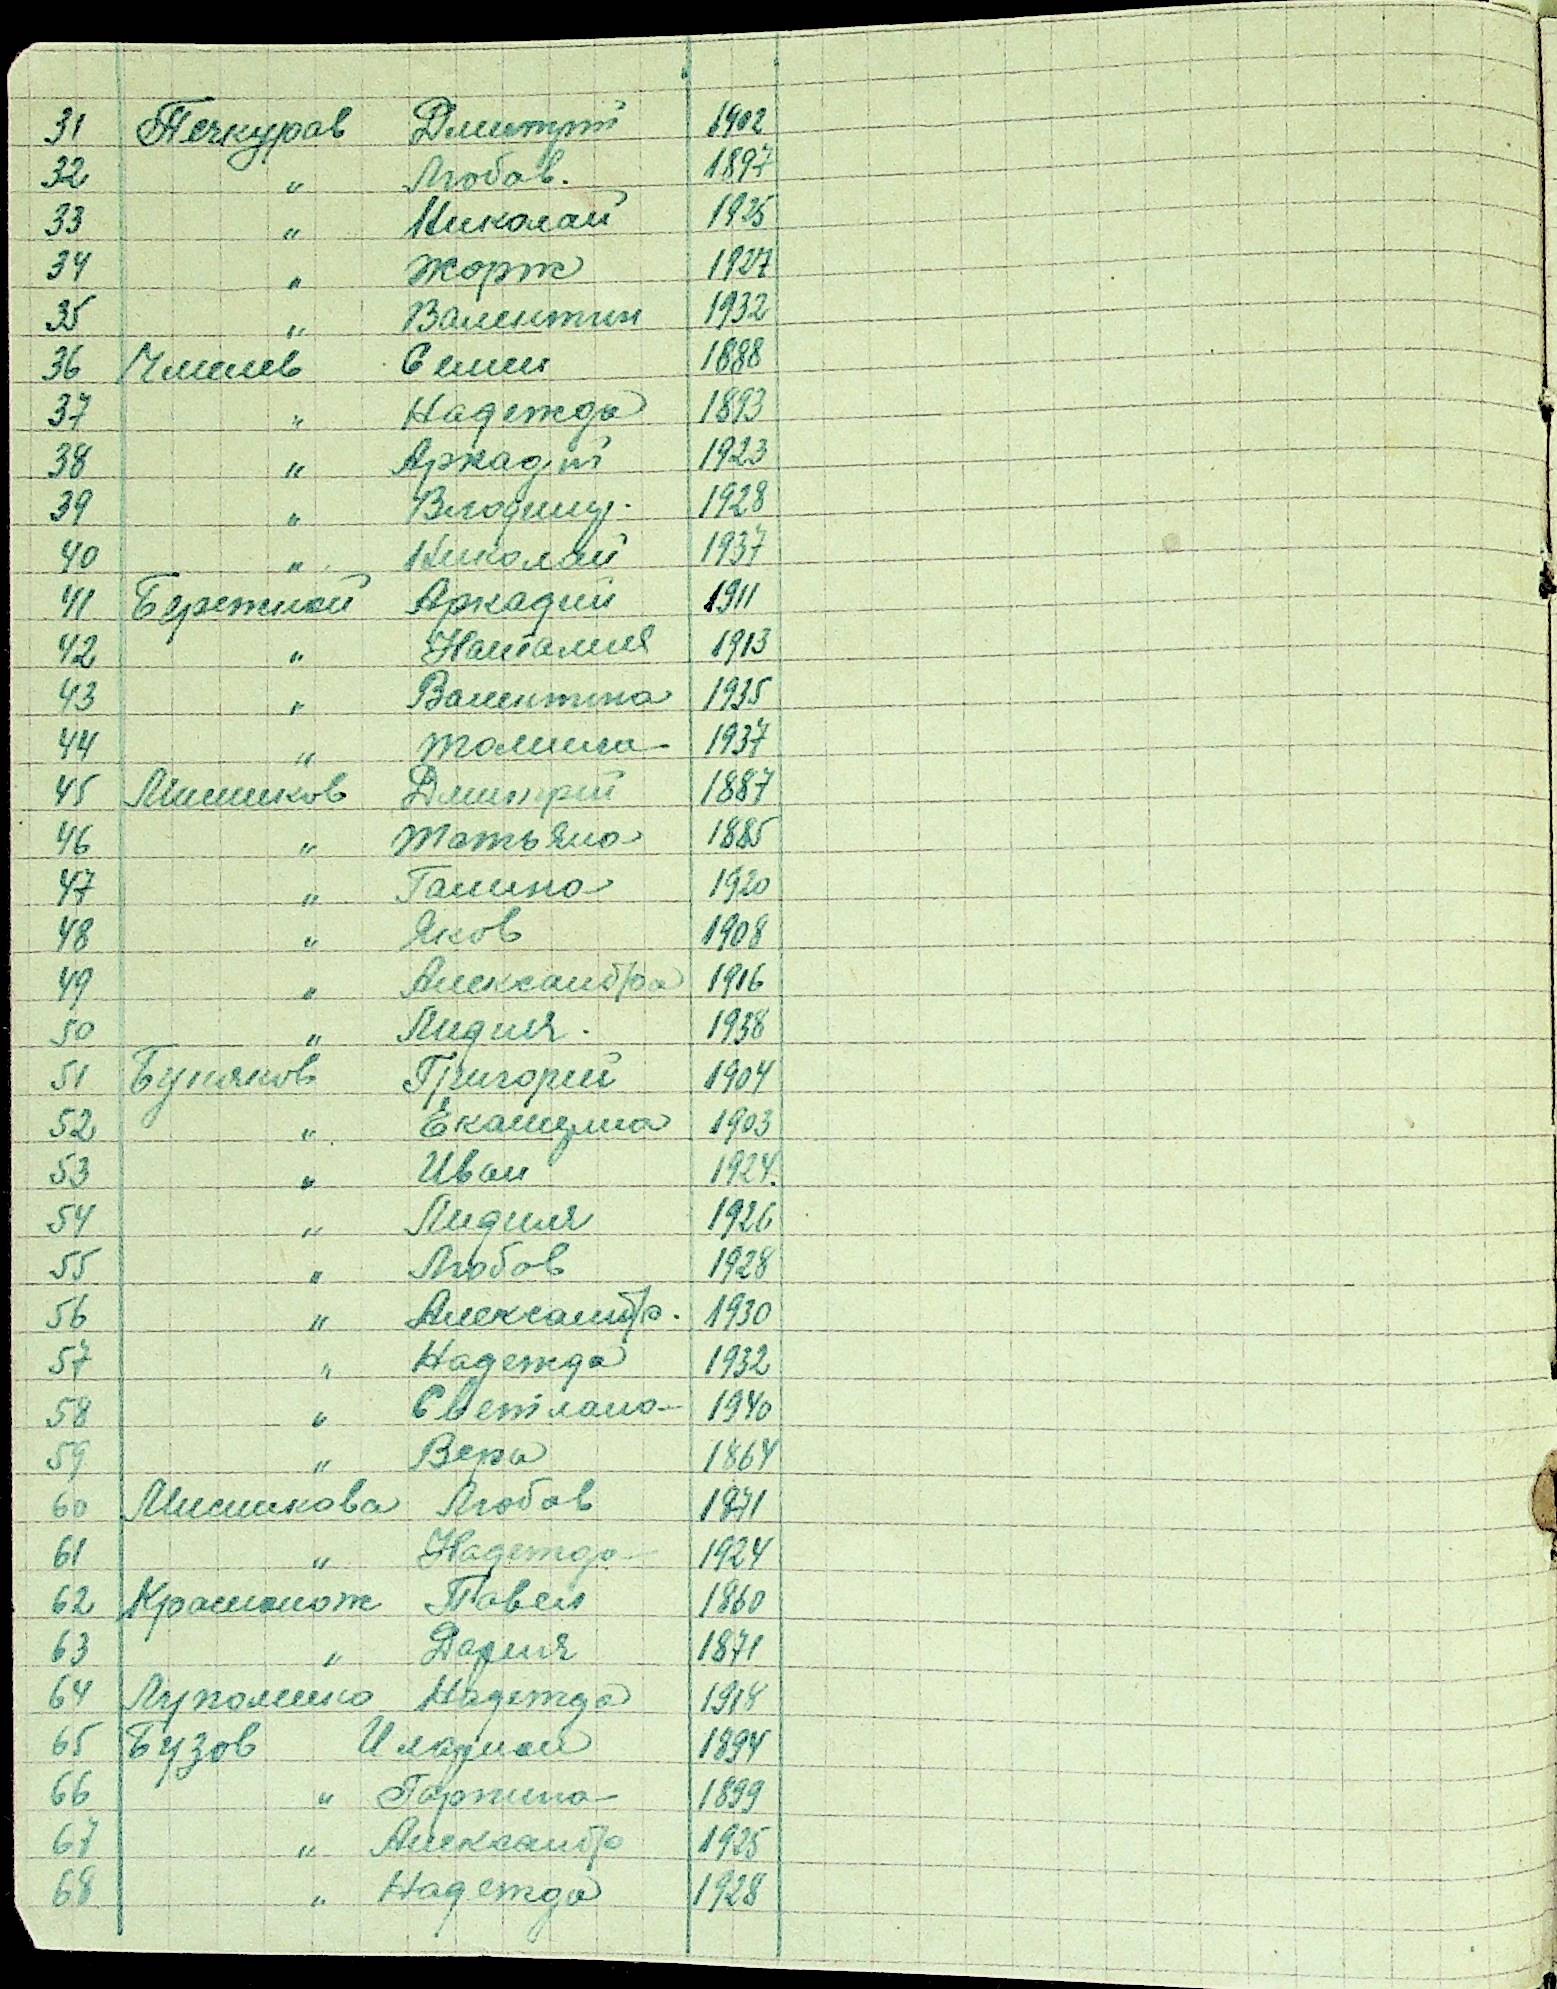 31 Печкуров Дмитрий 1902
32 " Любов. 1897
33 " Николай 1925
34 " Жорж 1927
35 " Валентин 1932
36 Чмелев Семен 1888
37 " Надежда 1893
38 " Аркадий 1923
39 " Владимир. 1928
40 " Николай 1937
41 Бережной Аркадий 1911
42 " Наталия 1913
43 " Валентина 1935
44 " 1937
45 Мишиков Дмитрий 1887
46 " Татьяна 1885
47 " Галина 1920
48 " Яков 1908
49 " Александра 1916
50 " Лидия. 1938
51 Буняков Григорий 1904
52 " Екатерина 1903
53 " Иван 1924.
54 " Лидия 1926
55 " Любов 1928
56 " Александр. 1930
57 " Надежда 1932
58 " Светлана 1940
59 " Вера 1864
60 Мишикова Любов 1871
61 " Надежда 1924
62 Павел 1860
63 " Дария 1871
64 Надежда 1918
65 Бузов 1894
66 " 1899
67 " Александр 1925
68 " Надежда 1928